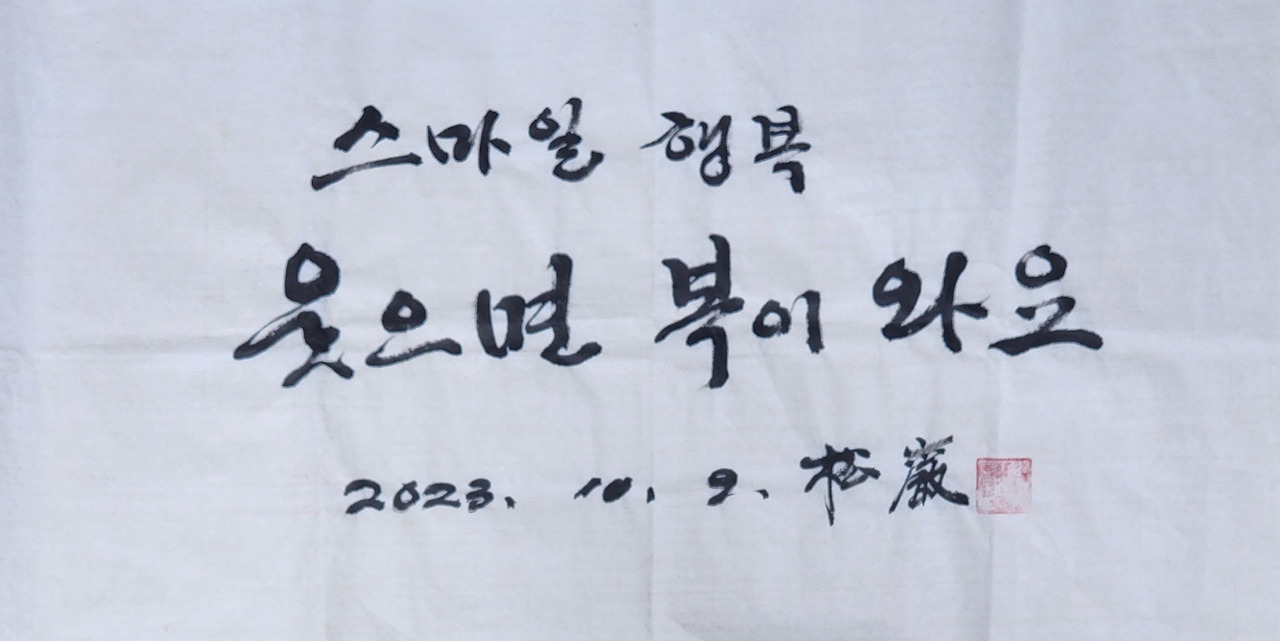 스마일 행복
웃으면 복이 와요
2023. 10. 9. 松巖